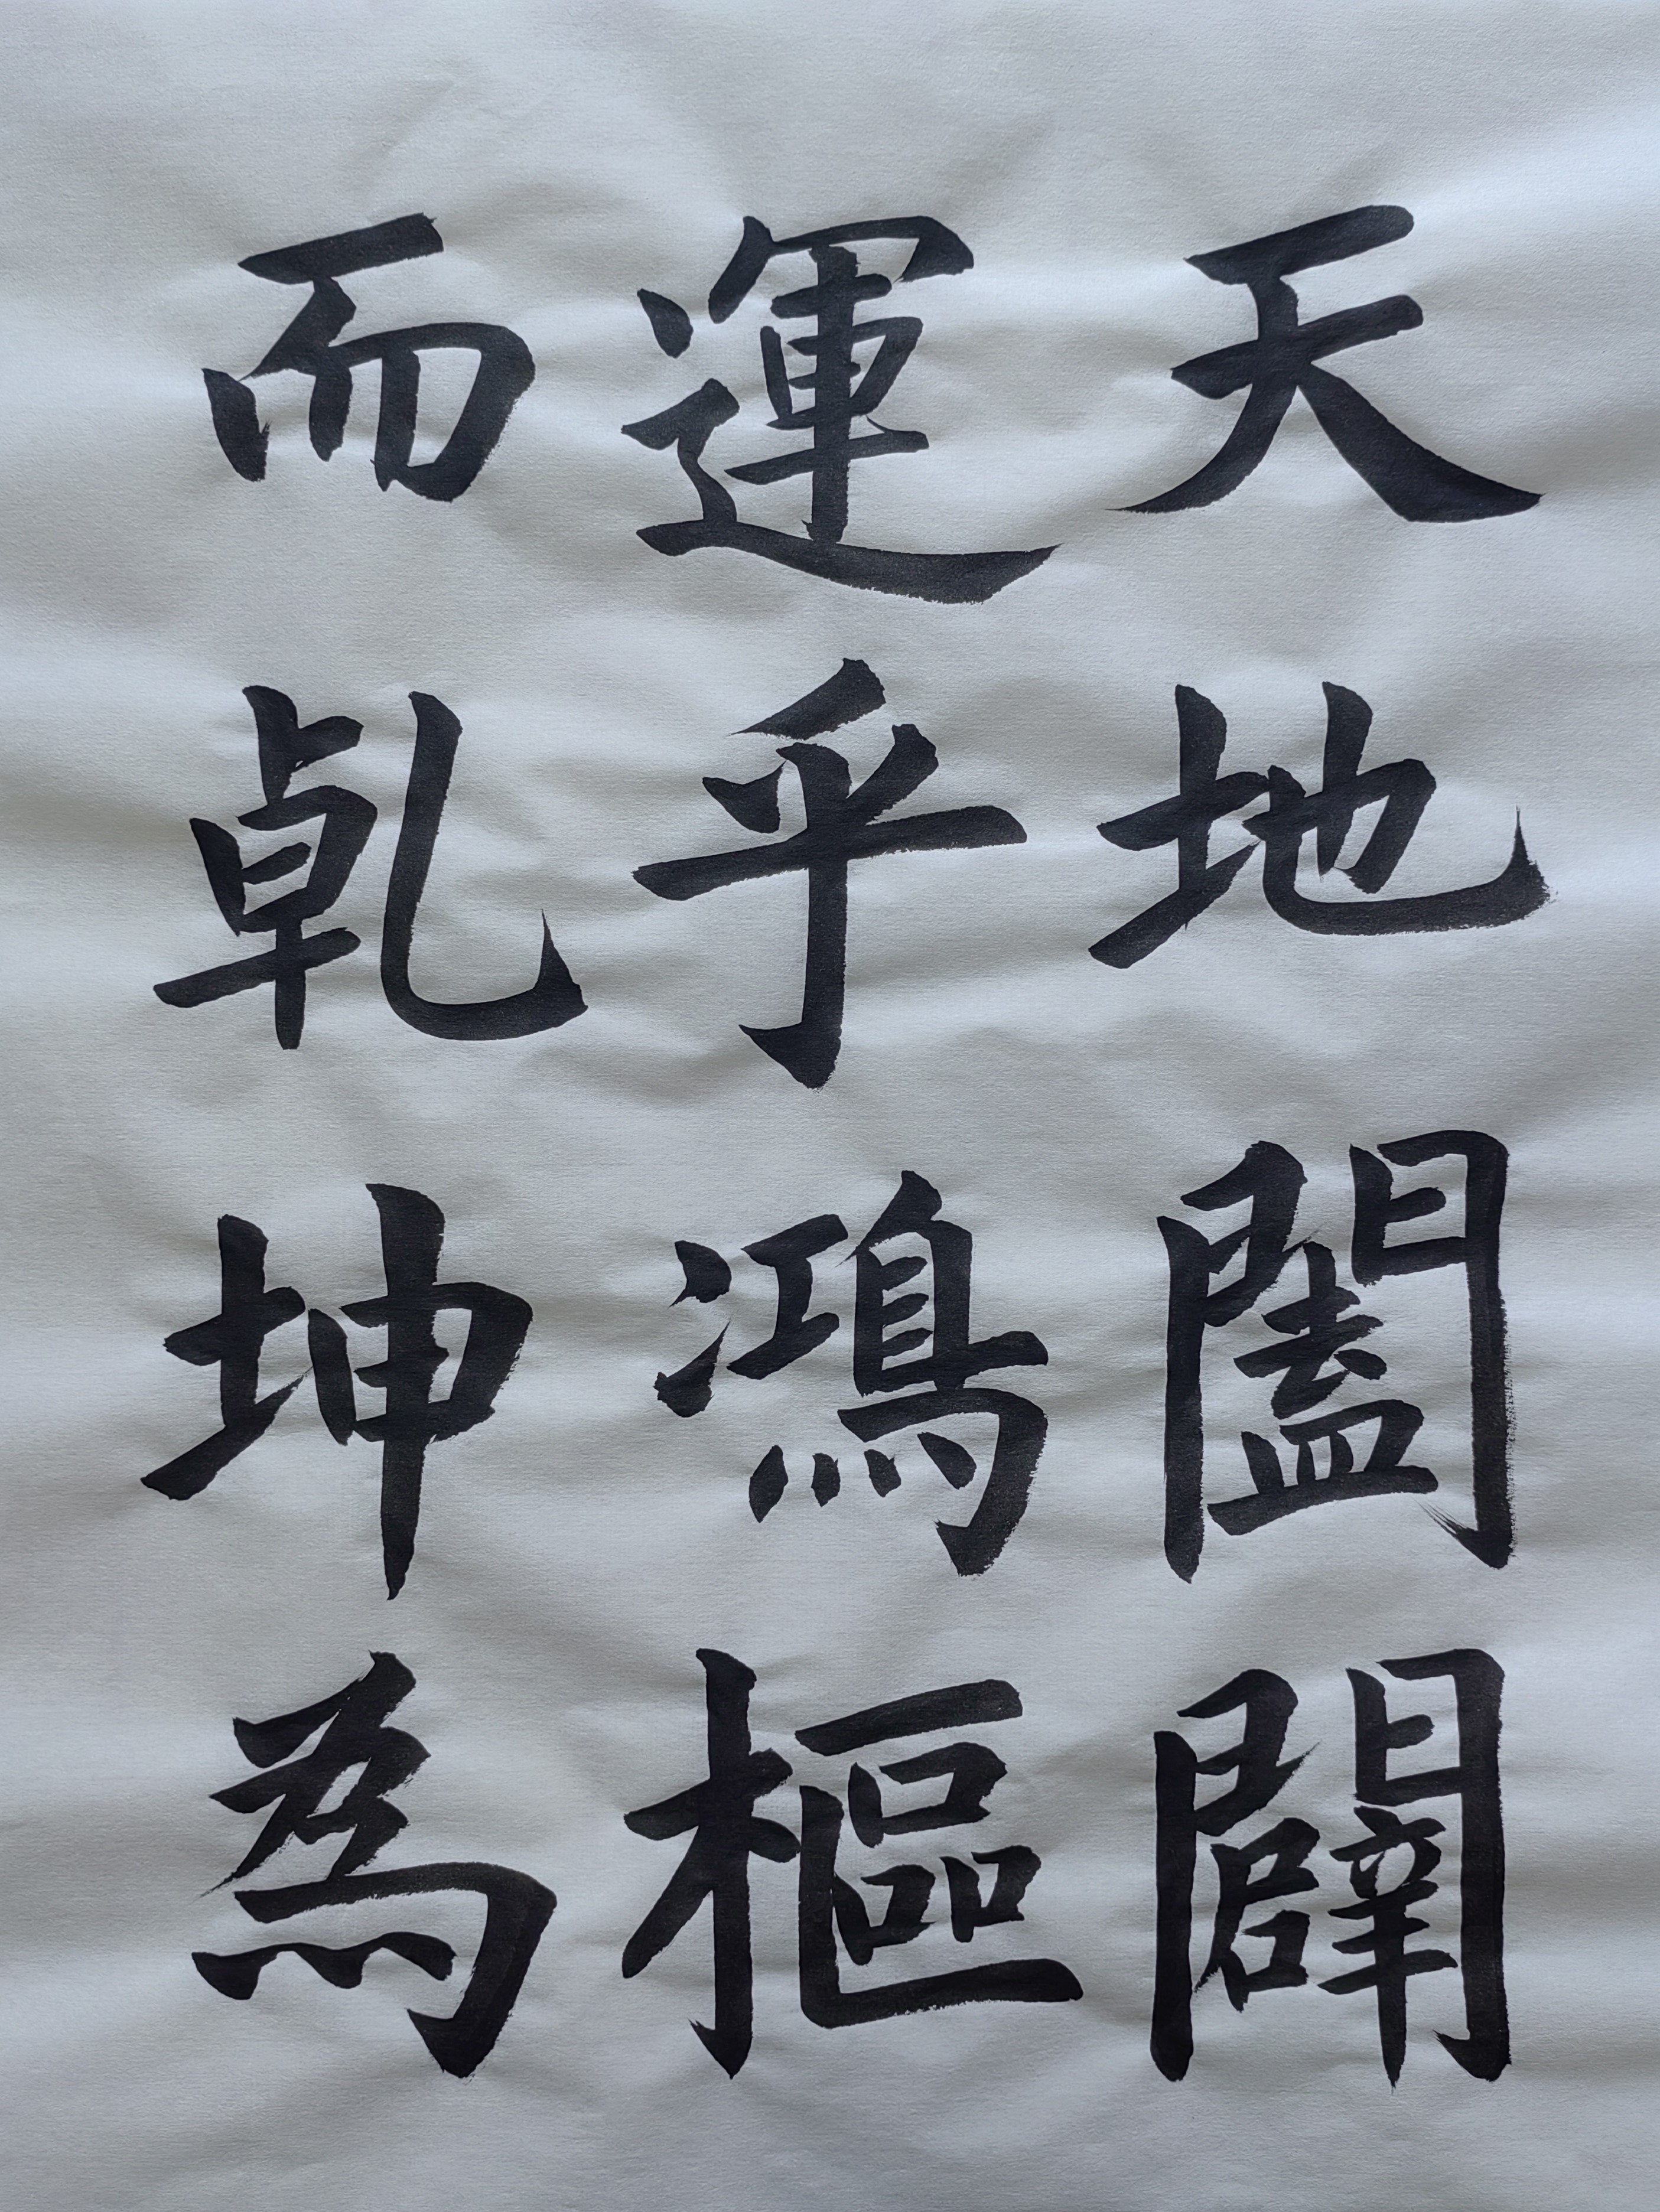 天地闔闢
運乎鴻樞
而乹坤為